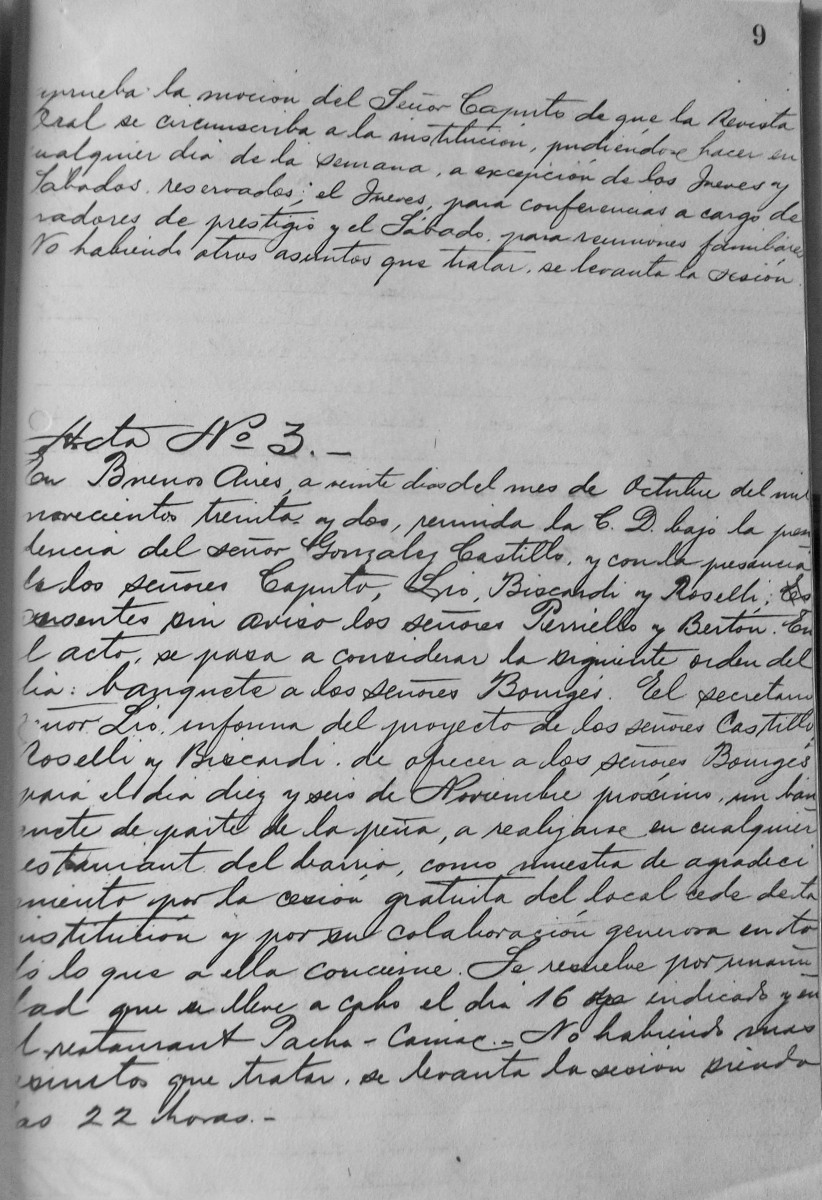 9
aprueba la moción del Señor Caputo de que la Revista
Oral se circunscriba a la institución, pudiéndose hacer en
cualquier día de la semana, a excepción de los Jueves y
Sábados, reservados; el Jueves, para conferencias a cargo de
radores de prestigio y el Sábado, para reuniones familiares
No habiendo otros asuntos que tratar, se levanta la sesión.
Acta Nº 3.-
En Buenos Aires, a veinte dias del mes de Octubre del mil
novecientos treinta y dos, reunida la C. D. bajo la presi
dencia del señor Gonzalez Castillo, y con la presencia
de los señores Caputo, Lio, Biscardi y Roselli; Es
ausentes sin aviso los señores Pierriello y Bertón. En
el acto, se pasa a considerar la siguiente orden del
dia: banquete a los señores Bourges. El secretario
señor Lio, informa del proyecto de los señores Castillo,
Roselli y Biscardi, de ofrecer a los señores Bourges
para el dia diez y seis de Noviembre próximo, un ban
quete de parte de la peña, a realizarse en cualquier
restaurant del barrio, como muestra de agradeci
miento por la cesión gratuita del local sede de la
institución y por su colaboración generosa en to
do lo que a ella concierne. Se resuelve por unanimi
dad que se lleve a cabo el día 16 indicado y en
el restaurant Pacha-Camac.- No habiendo mas
asuntos que tratar, se levanta la sesión siendo
las 22 horas.-